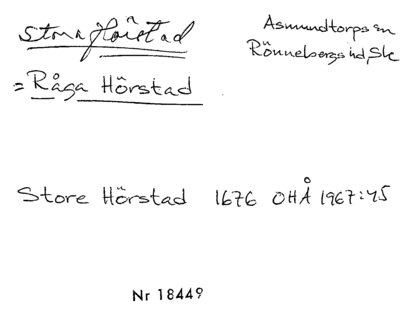 Stora Hörstad
Asmundtorps sn
Rönnebergs hd, Sk
= Råga Hörstad
Store Hörstad 1676 OHÅ 1967:45
Nr 18449